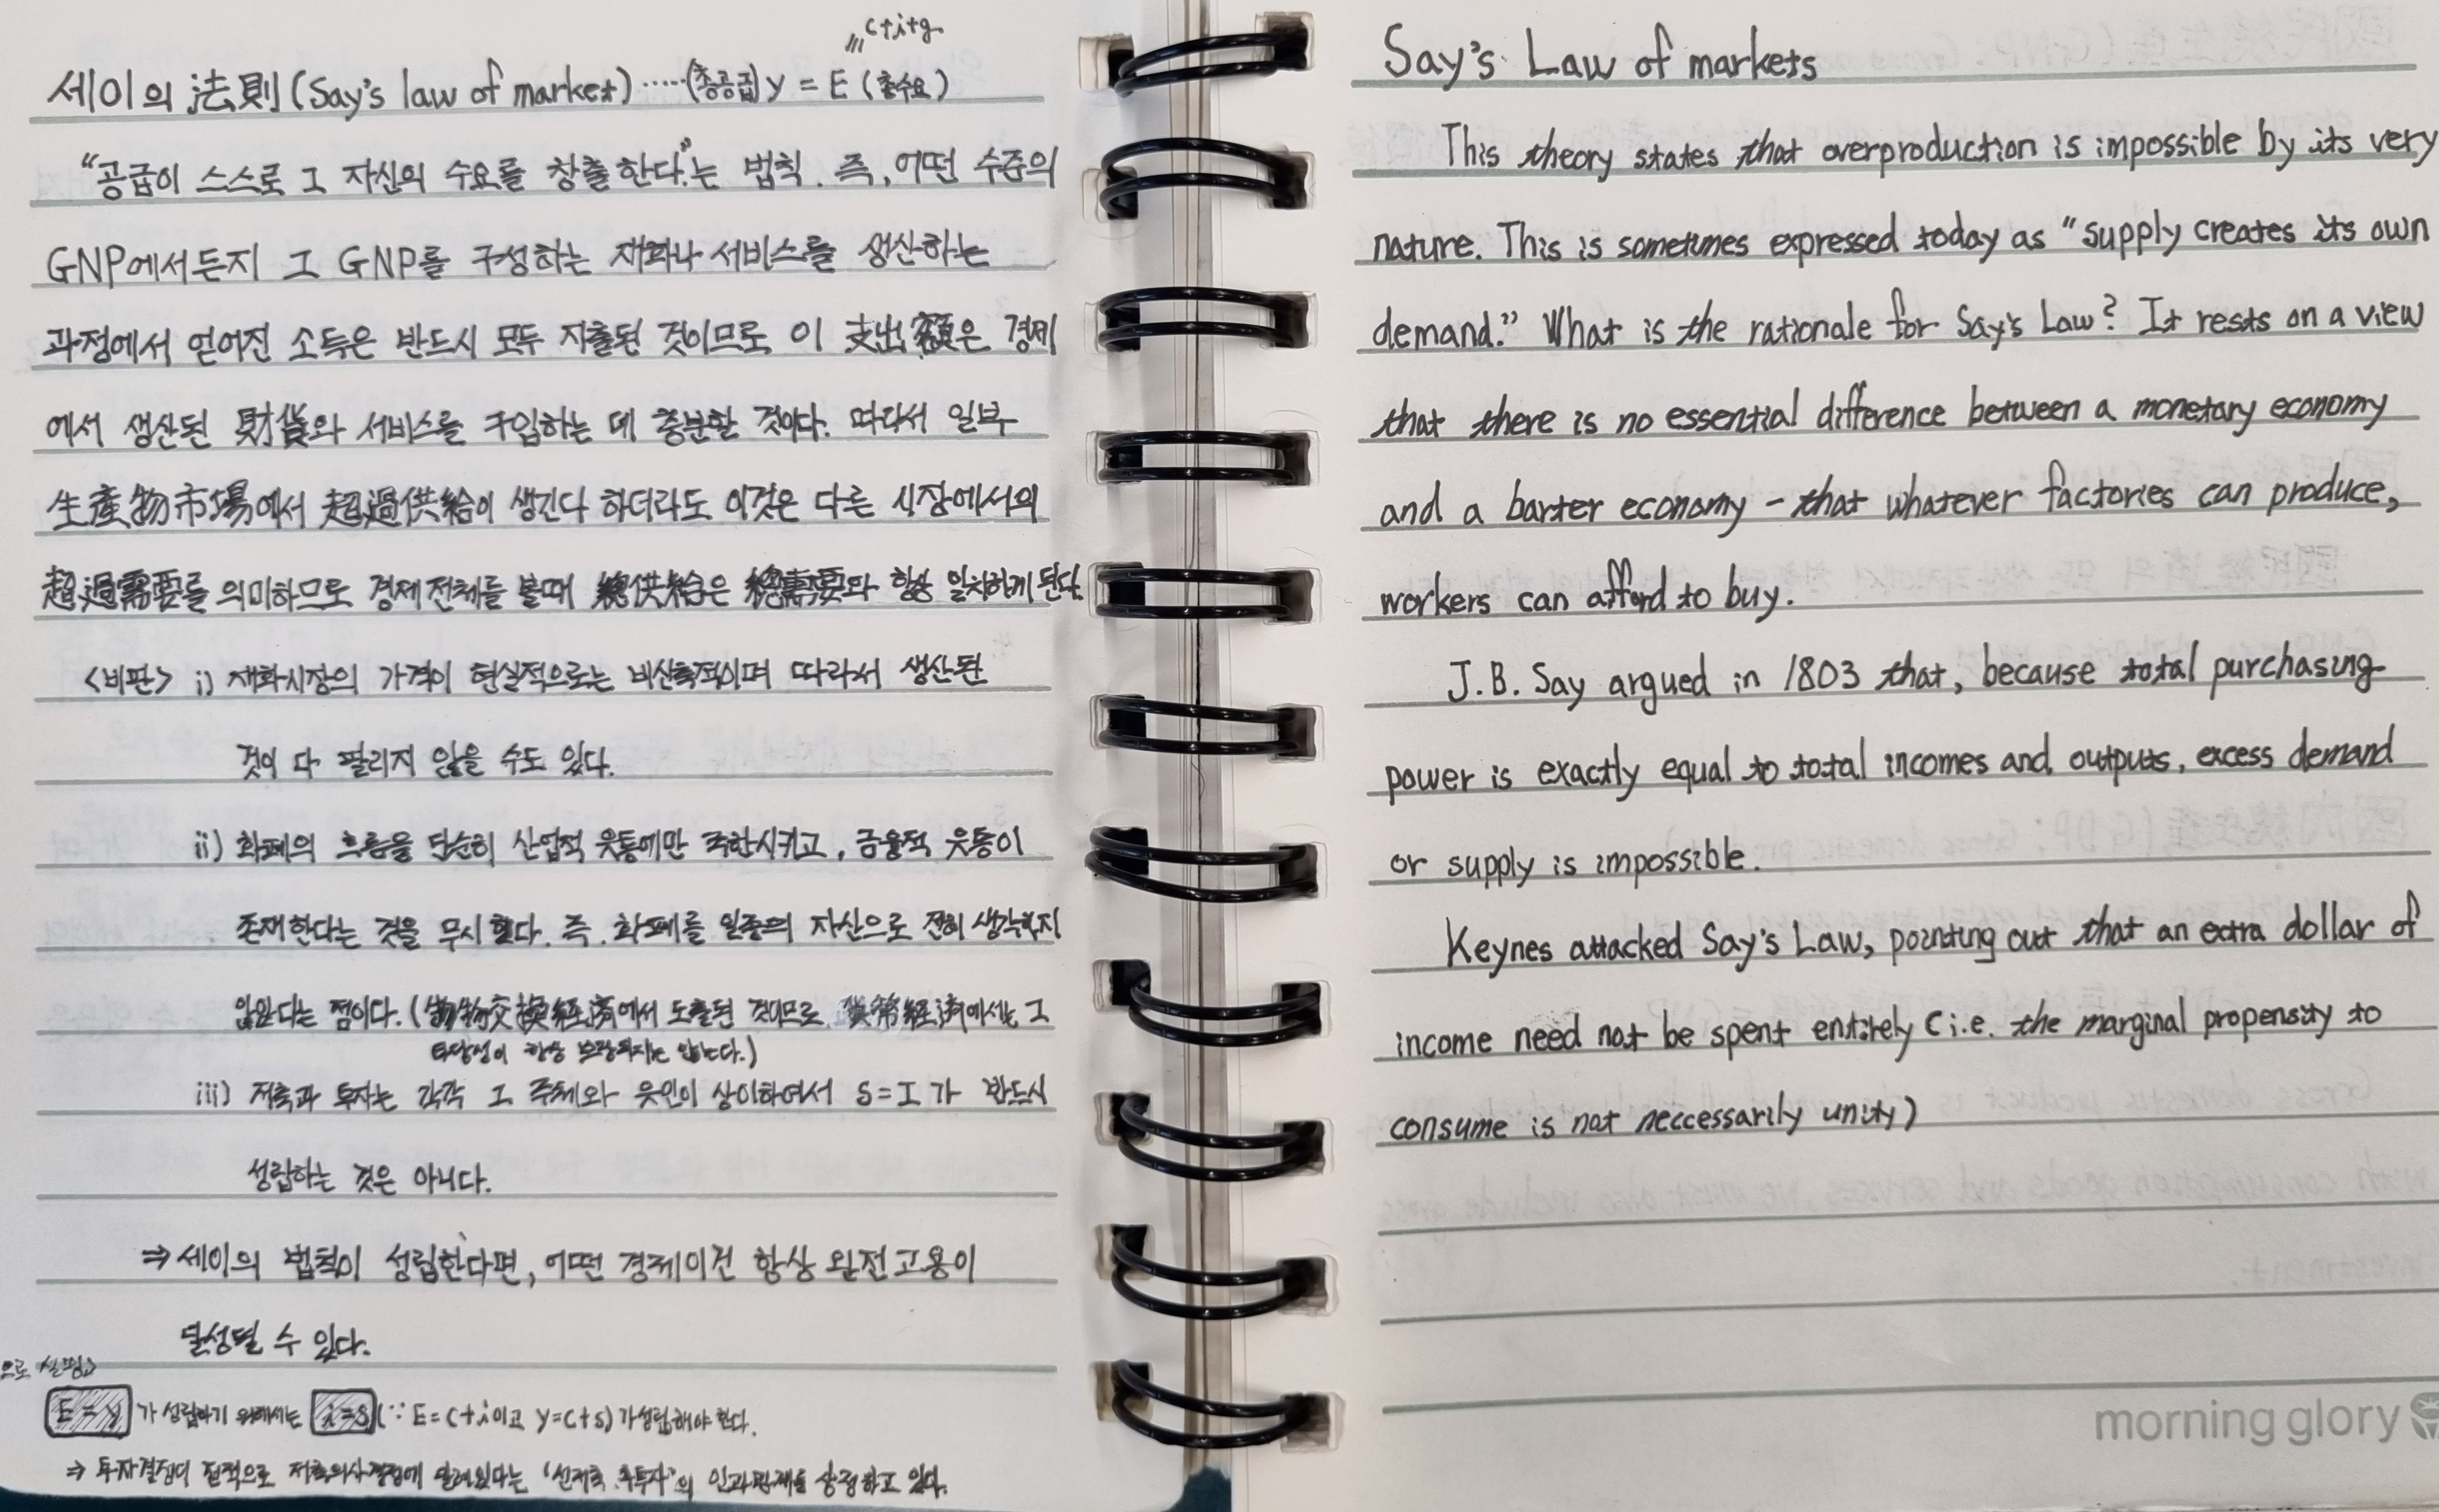 c+i+g
세이의 法則 (Say's law of market) ····· (총공급) Y = E (총수요)
"공급이 스스로 그 자신의 수요를 창출한다."는 법칙. 즉, 어떤 수준의
GNP에서든지 그 GNP를 구성하는 재화나 서비스를 생산하는
과정에서 얻어진 소득은 반드시 모두 지출된 것이므로 이 支出額은 경제
에서 생산된 財貨와 서비스를 구입하는 데 충분할 것이다. 따라서 일부
生産物市場에서 超過供給이 생긴다 하더라도 이것은 다른 시장에서의
超過需要를 의미하므로 경제전체를 볼때 總供給은 總需要와 항상 일치하게 된다.
<비판> i) 재화시장의 가격이 현실적으로는 비신축적이며 따라서 생산된
것이 다 팔리지 않을 수도 있다.
ii) 화폐의 흐름을 단순히 산업적 유통에만 국한시키고, 금융적 유통이
존재한다는 것을 무시했다. 즉. 화폐를 일종의 자산으로 전혀 생각하지
않았다는 점이다. (物物交換経済에서 도출된 것이므로 貨幣経済에서는 그
타당성이 항상 보장되지는 않는다.)
iii) 저축과 투자는 각각 그 주체와 유인이 상이하여서 S=I 가 반드시
성립하는 것은 아니다.
⇒ 세이의 법칙이 성립한다면, 어떤 경제이건 항상 완전고용이
달성될 수 있다.
으로 실명>
E = Y 가 성립하기 위해서는 i=s (∵ E=c+i 이고 Y=c+s) 가 성립해야 한다.
⇒ 투자결정이 전적으로 저축의사결정에 달려있다는 '선저축 후투자'의 인과관계를 상정하고 있다.
Say's Law of markets
This theory states that overproduction is impossible by its very
nature. This is sometimes expressed today as "supply creates its own
demand." What is the rationale for Say's Law? It rests on a view
that there is no essential difference between a monetary economy
and a barter economy - that whatever factories can produce,
workers can afford to buy.
J.B. Say argued in 1803 that, because total purchasing
power is exactly equal to total incomes and outputs, excess demand
or supply is impossible.
Keynes attacked Say's Law, pointing out that an extra dollar of
income need not be spent entirely (i.e. the marginal propensity to
consume is not neccessarily unity)
morning glory